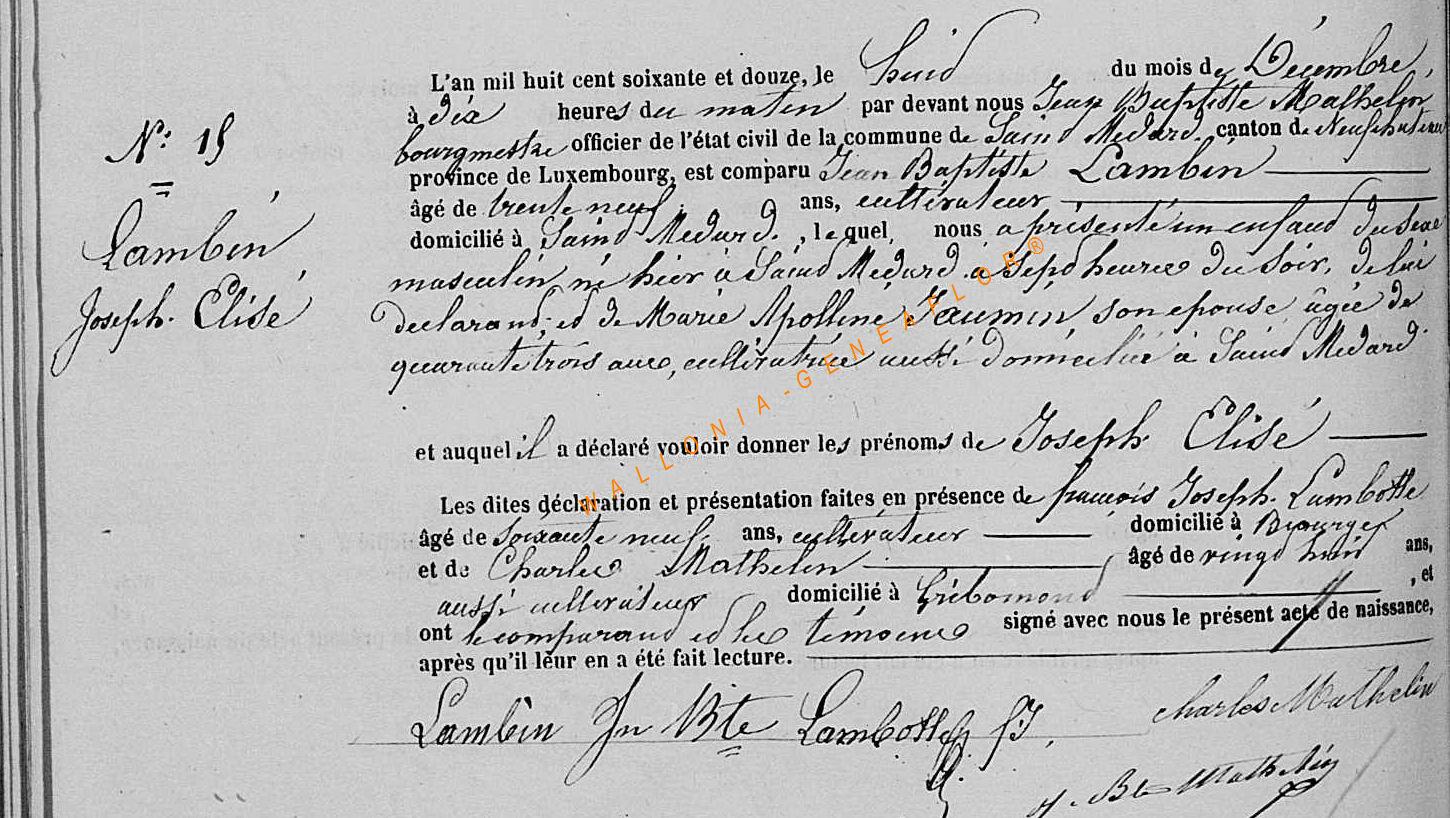 N: 15
Lambin
Joseph. Elisé
L'an mil huit cent soixante et douze, le huid du mois de Décembre,
à dix heures du matin par devant nous Jean Baptiste Mathelin
bourgmestre officier de l'état civil de la commune de Saind Medard, canton de Neufchateau
province de Luxembourg, est comparu Jean Baptiste Lambin
âgé de trente neuf ans, cultivateur
domicilié à Saind Medard, lequel nous a présenté un enfand du sexe
masculin né hier à Saind Medard à sepd heures du soir, de lui
declarand, ed de Marie Apolline Jaumin, son epouse, âgée de
quarante trois ans, cultivatrice aussi domiciliée à Saind Medard.
et auquel il a déclaré vouloir donner les prénoms de Joseph Elisé
Les dites déclaration et présentation faites en présence de françois Joseph. Lambotte
âgé de soixante neuf. ans, cultivateur domicilié à Biourge
et de Charles Mathelin âgé de vingd huid ans,
aussi cultivateur domicilié à Gribomond, et
ont le comparand ed les témoins signé avec nous le présent acte de naissance,
après qu'il leur en a été fait lecture.
Lambin Jn Bte Lambotte fJ, charles Mathelin
J. Bte Mathelin
WALLONIA-GENEAFLOR®